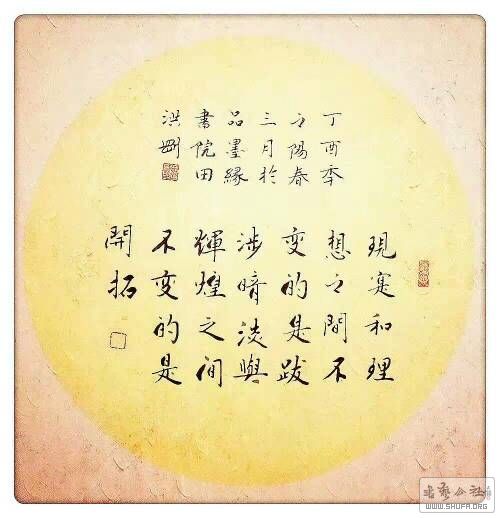 現寔和理
想之間不
变的是跋
涉暗淡與
輝煌之间
不变的是
開拓
丁酉年
之陽春
三月於
品墨緣
書院田
洪剛
书艺公社
WWW.SHUFA.ORG